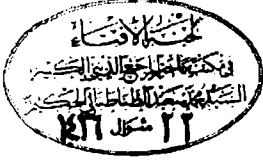 لجنة الافتاء
في مكتب سماحة المرجع الديني الكبير
السيد محمد سعيد الطباطبائي الحكيم
٢٢ شوال ١٤٣٦